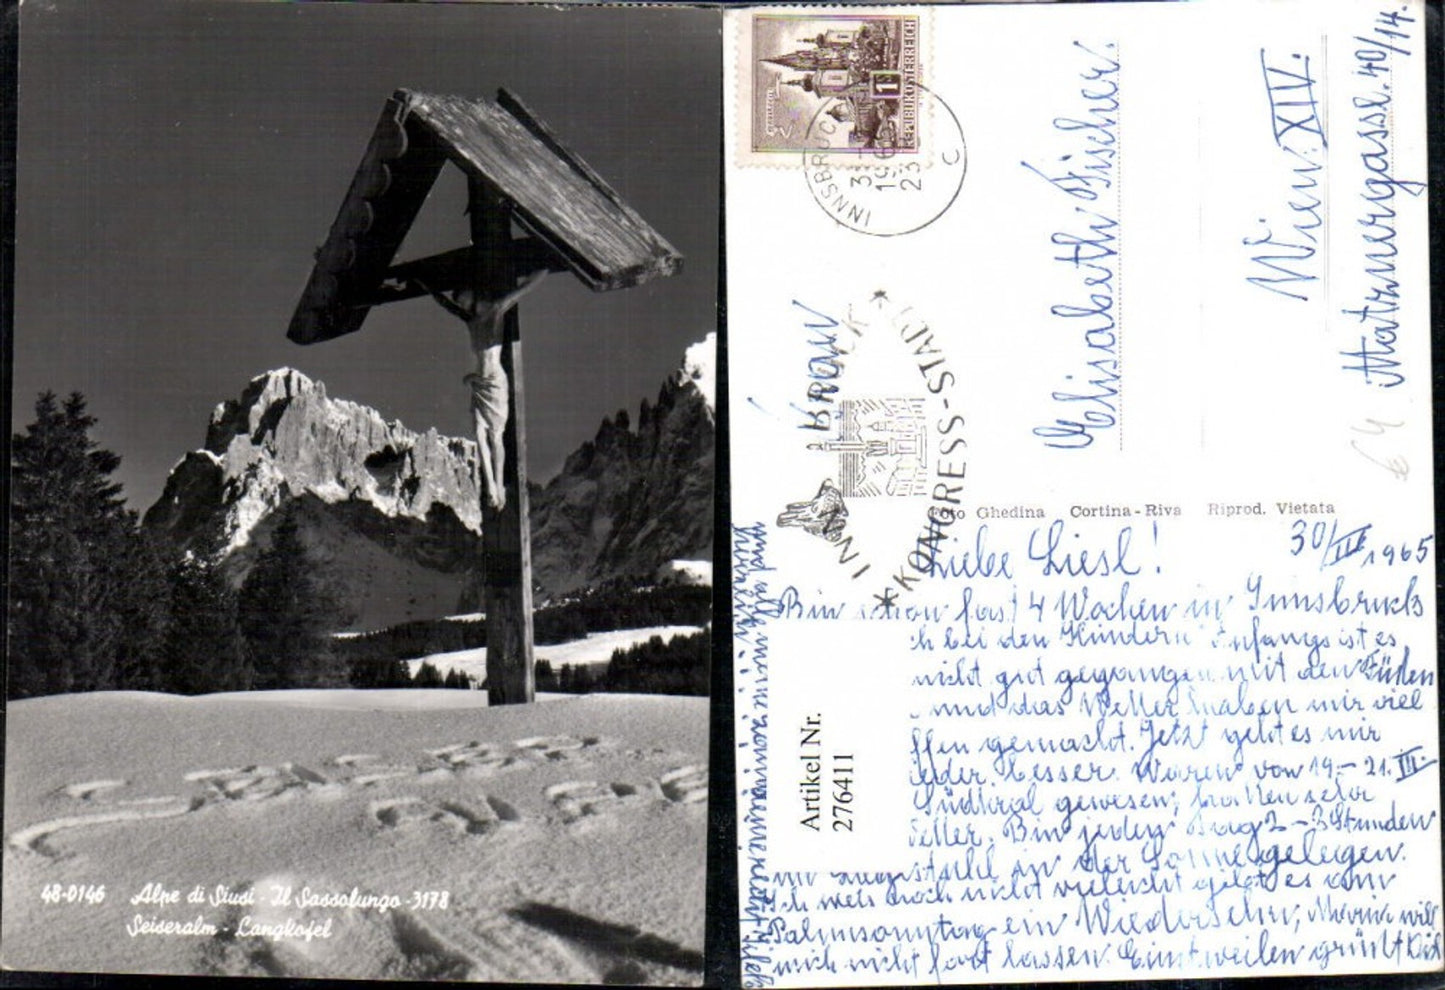 48-0146 Alpe di Siusi - Il Sassolungo - 3178
Seiseralm - Langkofel
REPUBLIK ÖSTERREICH
1 S
INNSBRUCK
C
INNSBRUCK
* KONGRESS-STADT *
Frau
Elisabeth Fischer.
Wien. XIV.
Matznergasse. 40/14.
64
Foto Ghedina Cortina - Riva Riprod. Vietata
30/III 1965
Liebe Liesl!
Bin schon fast 4 Wochen in Innsbruck
h bei den Kindern Anfangs ist es
nicht gut gegangen mit den Füßen
und das Wetter haben mir viel
ffen gemacht. Jetzt geht es mir
ieder besser. Waren von 19. - 21. III.
Südtirol gewesen, hatten sehr
etter. Bin jeden Tag 2-3 Stunden
im Liegestuhl in der Sonne gelegen.
Ich weis noch nicht vieleicht gibt es am
Palmsonntag ein Wiedersehn, will
mich nicht fort lassen. Einstweilen grüßt Dich
und alle
Artikel Nr.
276411